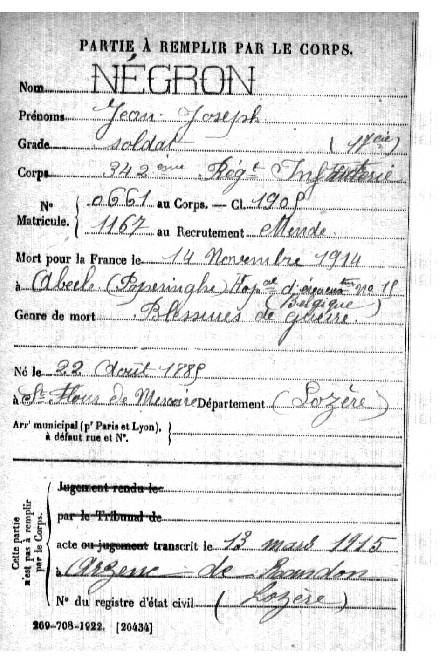 PARTIE À REMPLIR PAR LE CORPS.
Nom NÉGRON
Prénoms Jean Joseph
Grade soldat (17 cie)
Corps 342 ème Rég t Infanterie
N° Matricule. { 0661 au Corps. — Cl. 1908
1167 au Recrutement Mende
Mort pour la France le 14 Novembre 1914
à Abeele (Poperinghe) Hop al d'évacua tion No 15
(Belgique)
Genre de mort Blessures de guerre
Né le 22 Août 1888
à St Flour de Mercoire Département (Lozère)
Arr t municipal (p r Paris et Lyon), à défaut rue et N°. {
Cette partie n'est pas à remplir par le Corps.
Jugement rendu le
par le Tribunal de
acte ou jugement transcrit le 13 mars 1915
à Arzenc de Randon
N° du registre d'état civil (Lozère)
269-708-1922. [26434]